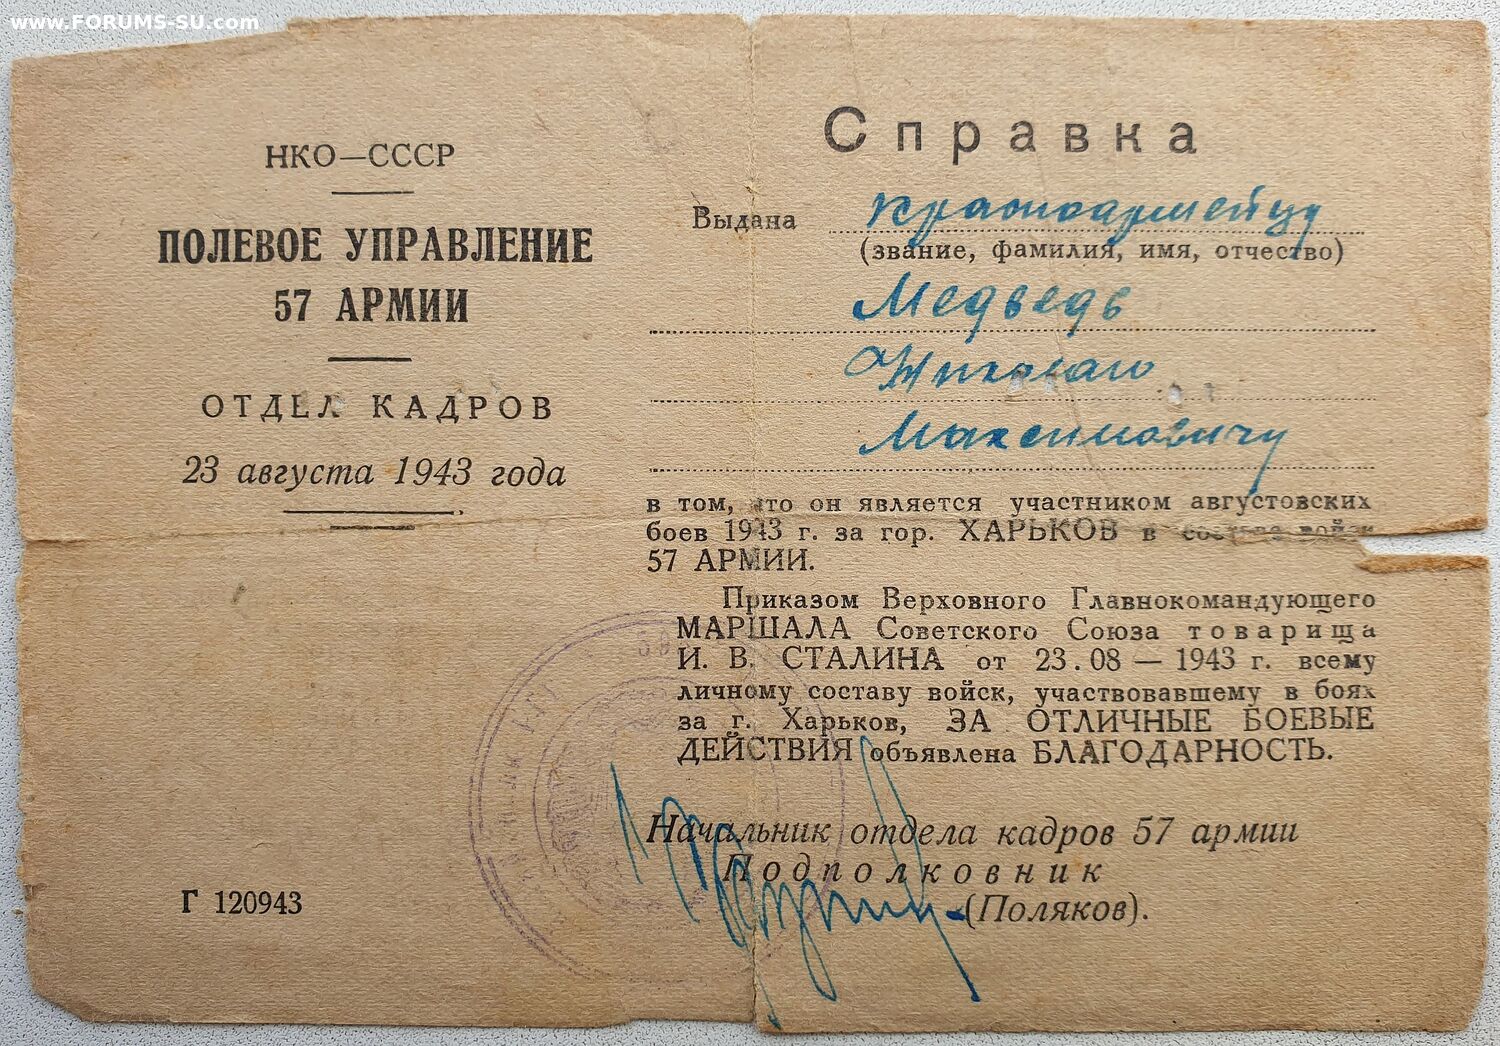 www.FORUMS-SU.com
НКО—СССР
ПОЛЕВОЕ УПРАВЛЕНИЕ
57 АРМИИ
ОТДЕЛ КАДРОВ
23 августа 1943 года
Г 120943
Справка
Выдана красноармейцу
(звание, фамилия, имя, отчество)
Медведь
Николаю
Максимовичу
в том, что он является участником августовских
боев 1943 г. за гор. ХАРЬКОВ в составе войск
57 АРМИИ.
Приказом Верховного Главнокомандующего
МАРШАЛА Советского Союза товарища
И. В. СТАЛИНА от 23.08 — 1943 г. всему
личному составу войск, участвовавшему в боях
за г. Харьков, ЗА ОТЛИЧНЫЕ БОЕВЫЕ
ДЕЙСТВИЯ объявлена БЛАГОДАРНОСТЬ.
Начальник отдела кадров 57 армии
Подполковник
(Поляков).